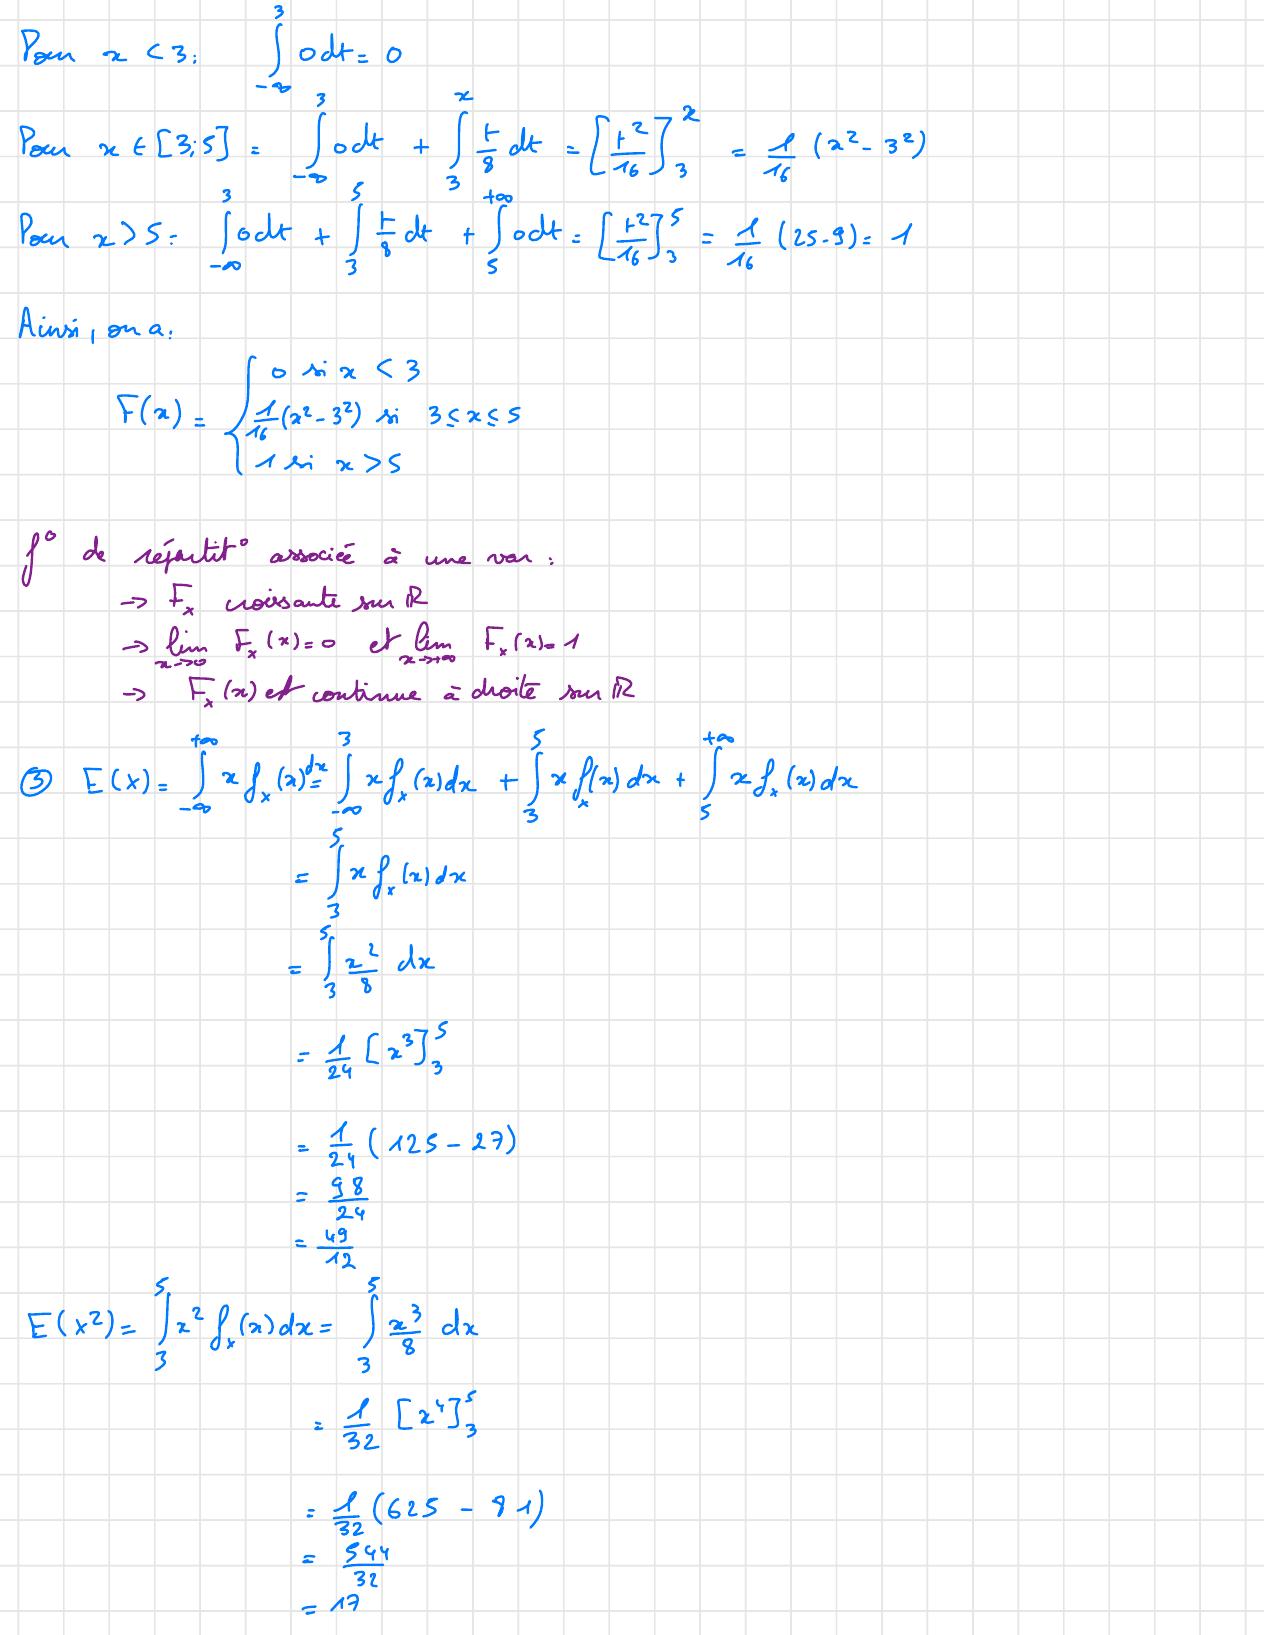 Pour x < 3 : ∫_{-∞}^{3} 0 dt = 0
Pour x ∈ [3;5] = ∫_{-∞}^{3} 0 dt + ∫_{3}^{x} t/8 dt = [t²/16]_{3}^{x} = 1/16 (x² - 3²)
Pour x > 5 = ∫_{-∞}^{3} 0 dt + ∫_{3}^{5} t/8 dt + ∫_{5}^{+∞} 0 dt = [t²/16]_{3}^{5} = 1/16 (25-9) = 1
Ainsi, on a :
F(x) = { 0 si x < 3
1/16 (x² - 3²) si 3 ≤ x ≤ 5
1 si x > 5
f° de répartit° associée à une var :
→ F_x croissante sur ℝ
→ lim_{x→0} F_x(x) = 0 et lim_{x→+∞} F_x(x) = 1
→ F_x(x) est continue à droite sur ℝ
③ E(X) = ∫_{-∞}^{+∞} x f_x(x) dx = ∫_{-∞}^{3} x f_x(x) dx + ∫_{3}^{5} x f_x(x) dx + ∫_{5}^{+∞} x f_x(x) dx
= ∫_{3}^{5} x f_x(x) dx
= ∫_{3}^{5} x²/8 dx
= 1/24 [x³]_{3}^{5}
= 1/24 (125 - 27)
= 98/24
= 49/12
E(X²) = ∫_{3}^{5} x² f_x(x) dx = ∫_{3}^{5} x³/8 dx
= 1/32 [x⁴]_{3}^{5}
= 1/32 (625 - 81)
= 544/32
= 17